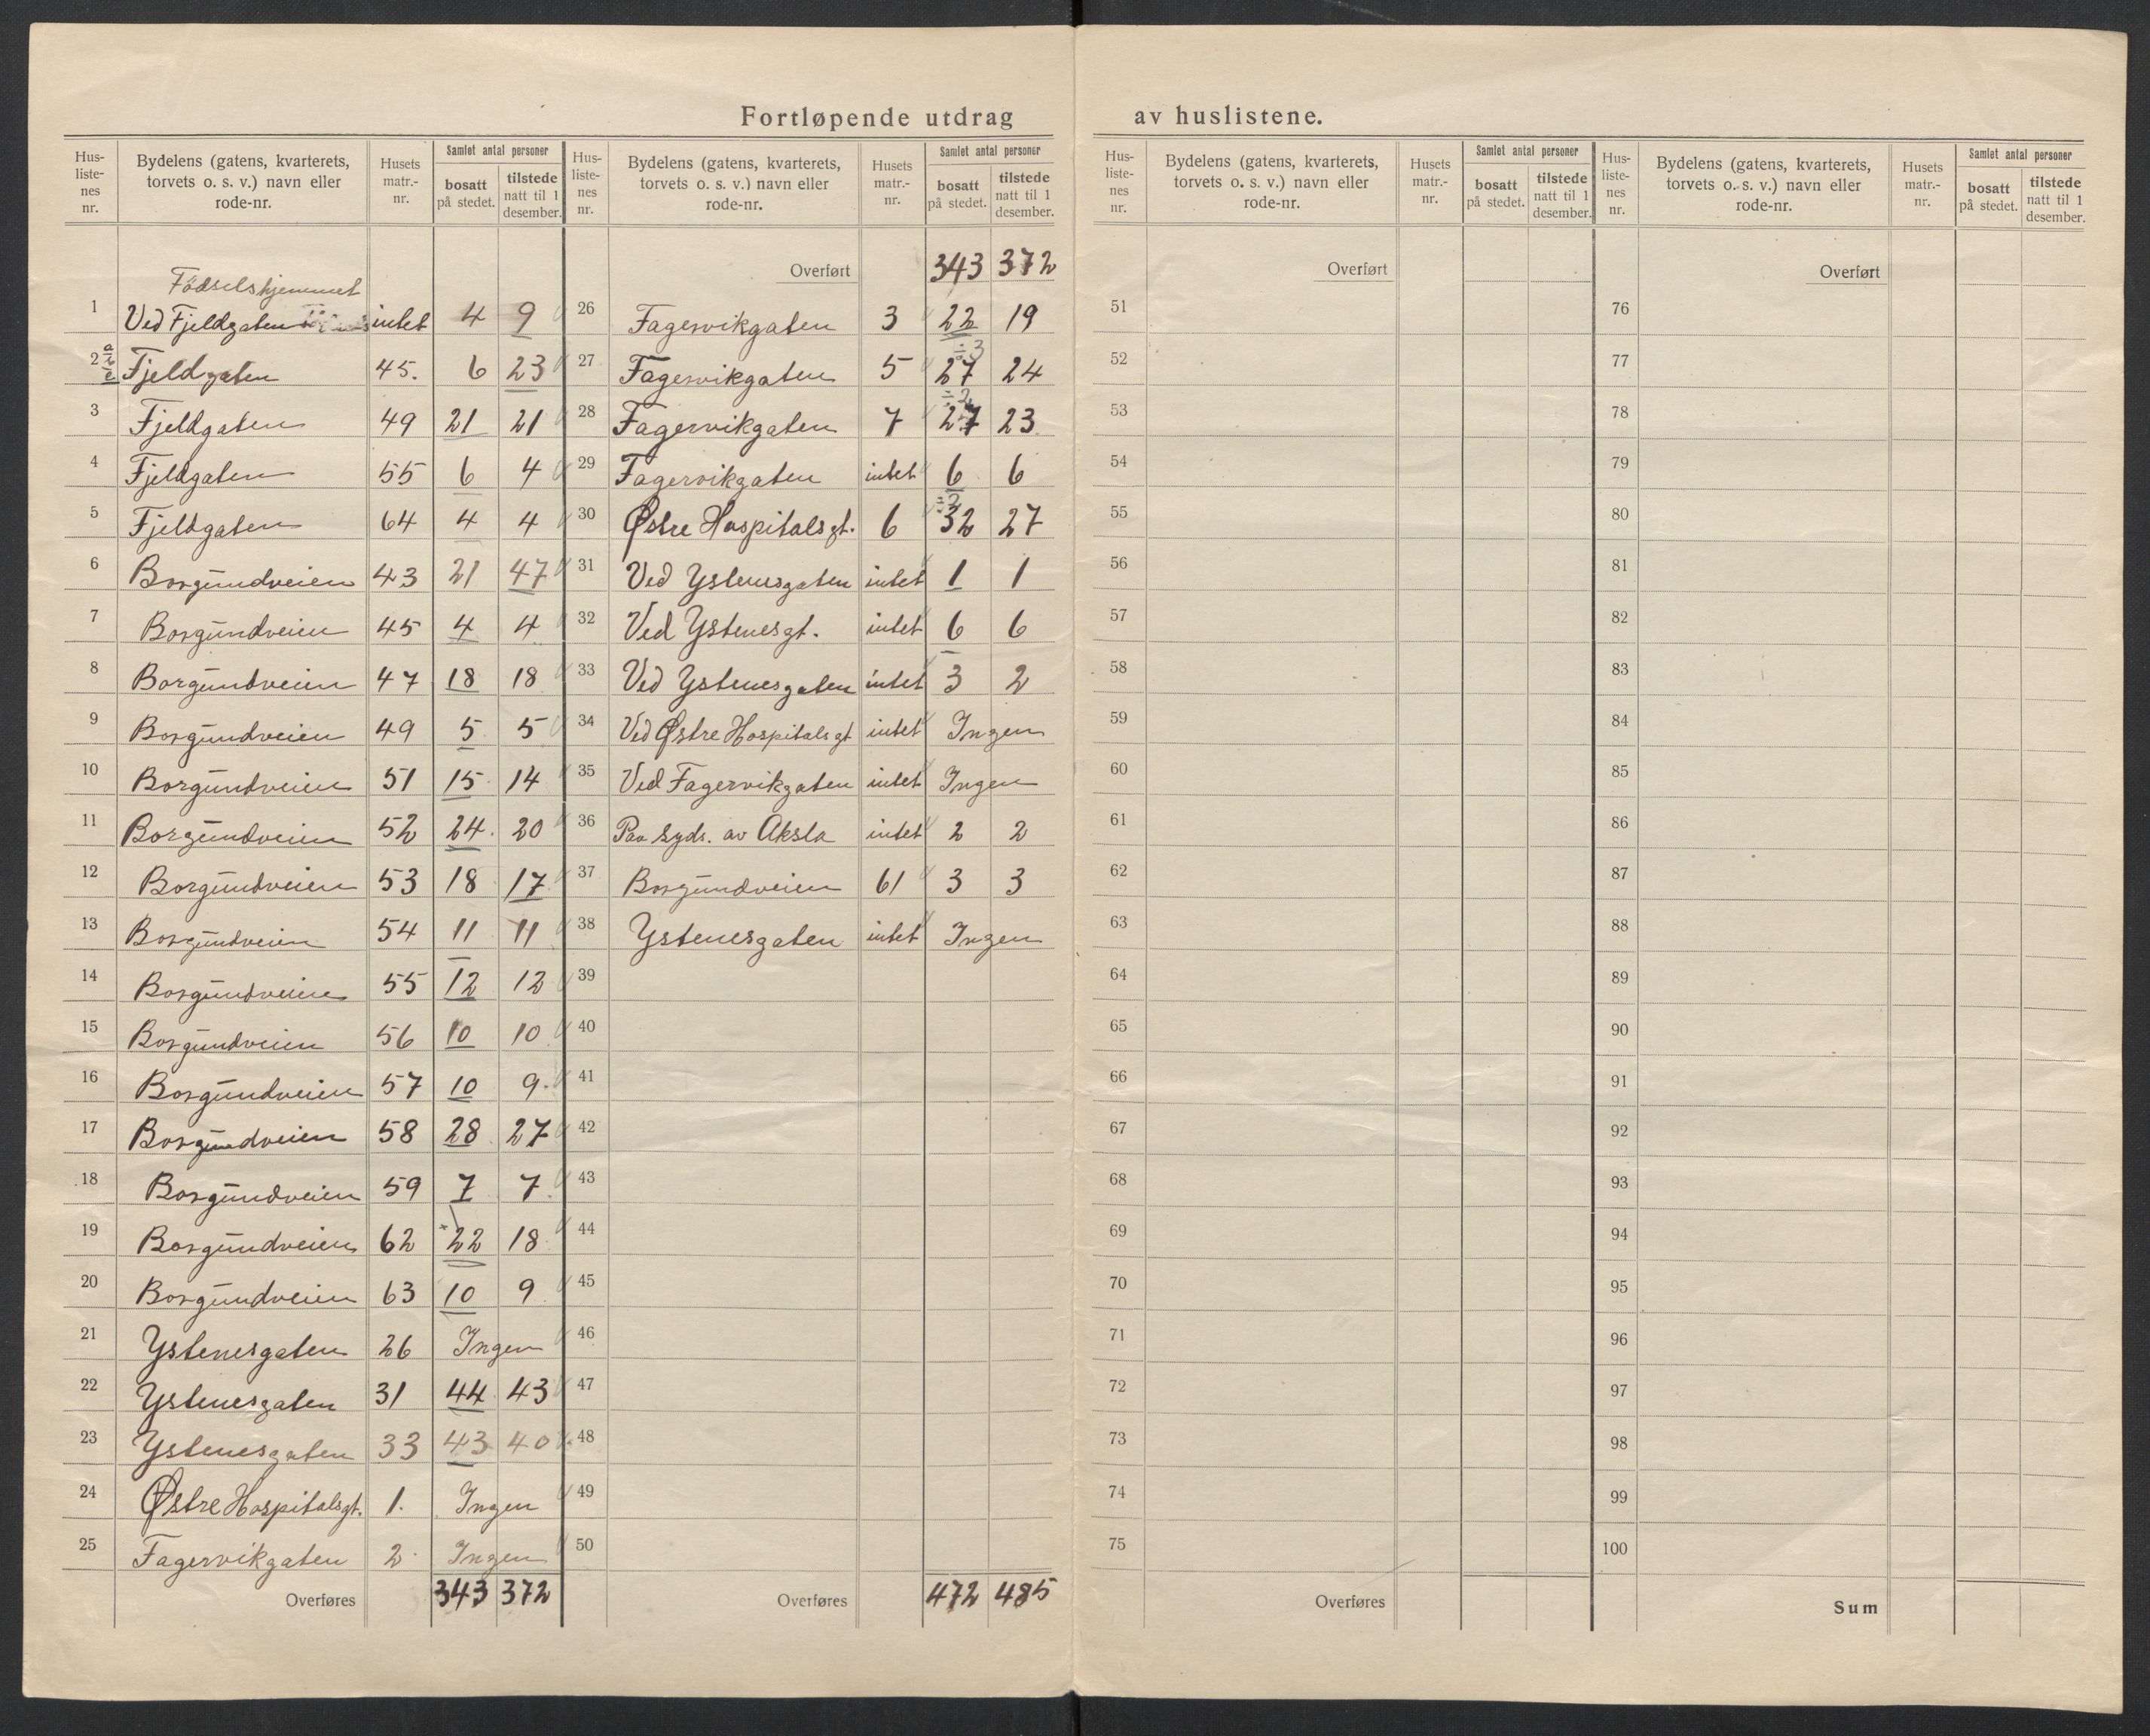 Fortløpende utdrag av huslistene.
Hus-listenes nr. | Bydelens (gatens, kvarterets, torvets o. s. v.) navn eller rode-nr. | Husets matr.-nr. | Samlet antal personer bosatt på stedet. | tilstede natt til 1 desember.
Fødselshjemmet
1 Ved Fjeldgaten intet 4 9
2 a b c Fjeldgaten 45. 6 23
3 Fjeldgaten 49 21 21
4 Fjeldgaten 55 6 4
5 Fjeldgaten 64 4 4
6 Borgundveien 43 21 47
7 Borgundveien 45 4 4
8 Borgundveien 47 18 18
9 Borgundveien 49 5 5
10 Borgundveien 51 15 14
11 Borgundveien 52 24. 20
12 Borgundveien 53 18 17
13 Borgundveien 54 11 11
14 Borgundveien 55 12 12
15 Borgundveien 56 10 10
16 Borgundveien 57 10 9.
17 Borgundveien 58 28 27
18 Borgundveien 59 7 7.
19 Borgundveien 62 22 18
20 Borgundveien 63 10 9
21 Ystenesgaten 26 Ingen
22 Ystenesgaten 31 44 43
23 Ystenesgaten 33 43 40
24 Østre Hospitalsgt. 1. Ingen
25 Fagervikgaten 2 Ingen
Overføres 343 372
Hus-listenes nr. | Bydelens (gatens, kvarterets, torvets o. s. v.) navn eller rode-nr. | Husets matr.-nr. | Samlet antal personer bosatt på stedet. | tilstede natt til 1 desember.
Overført 343 372
26 Fagervikgaten 3 22 19
÷ 3
27 Fagervikgaten 5 27 24
÷ 2
28 Fagervikgaten 7 27 23
29 Fagervikgaten intet 6 6
÷ 2
30 Østre Hospitalsgt. 6 32 27
31 Ved Ystenesgaten intet 1 1
32 Ved Ystenesgt. intet 6 6
33 Ved Ystenesgaten intet 3 2
34 Ved Østre Hospitalsgt intet Ingen
35 Ved Fagervikgaten intet Ingen
36 Paa syds. av Aksla intet 2 2
37 Borgundveien 61 3 3
38 Ystenesgaten intet Ingen
39
40
41
42
43
44
45
46
47
48
49
50
Overføres 472 485
Hus-listenes nr. | Bydelens (gatens, kvarterets, torvets o. s. v.) navn eller rode-nr. | Husets matr.-nr. | Samlet antal personer bosatt på stedet. | tilstede natt til 1 desember.
Overført
51
52
53
54
55
56
57
58
59
60
61
62
63
64
65
66
67
68
69
70
71
72
73
74
75
Overføres
Hus-listenes nr. | Bydelens (gatens, kvarterets, torvets o. s. v.) navn eller rode-nr. | Husets matr.-nr. | Samlet antal personer bosatt på stedet. | tilstede natt til 1 desember.
Overført
76
77
78
79
80
81
82
83
84
85
86
87
88
89
90
91
92
93
94
95
96
97
98
99
100
Sum